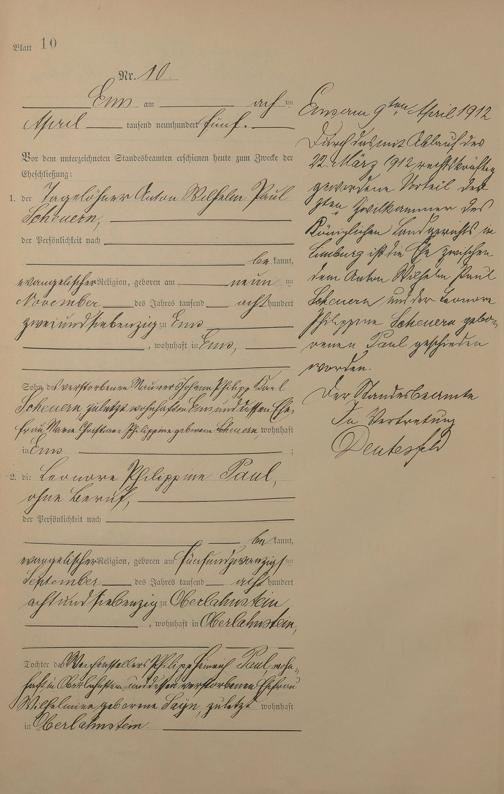 Blatt 10
Nr. 10
Ems am acht ten
April tausend neunhundert fünf.
Vor dem unterzeichneten Standesbeamten erschienen heute zum Zwecke der
Eheschließung:
1. der Tagelöhner Anton Wilhelm Paul
Scheuern,
der Persönlichkeit nach
be kannt,
evangelischer Religion, geboren am neun ten
November des Jahres tausend acht hundert
zweiundsiebenzig zu Ems
, wohnhaft in Ems,
Sohn des verstorbenen Maurers Johann Philipp Karl
Scheuern zuletzt wohnhaft in Ems und dessen Ehe-
frau Marie Philippine geborene wohnhaft
in Ems ;
2. die Leonore Philippine Paul,
ohne Beruf,
der Persönlichkeit nach
be kannt,
evangelischer Religion, geboren am fünfundzwanzigsten
September des Jahres tausend acht hundert
achtundsiebenzig zu Oberlahnstein
, wohnhaft in Oberlahnstein,
Tochter des Weichenstellers Philipp Heinrich Paul, wohn-
haft in Oberlahnstein und dessen verstorbenen Ehefrau
Wilhelmine geborene Sayn, zuletzt wohnhaft
in Oberlahnstein
Ems am 9ten April 1912
Durch das mit Ablauf des
22. März 1912 rechtskräftig
gewordene Urteil der
Zivilkammer des
Königlichen Landgerichts in
Limburg ist die Ehe zwischen
dem Anton Wilhelm Paul
Scheuern und der Leonore
Philippine Scheuern gebo-
renen Paul geschieden
worden.
Der Standesbeamte
In Vertretung